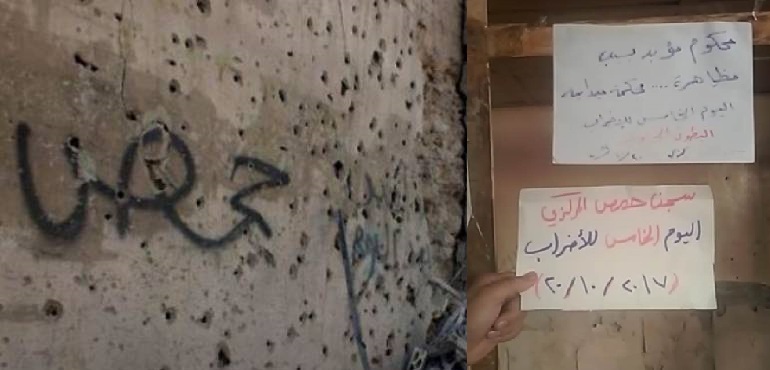 حمص
محكوم مؤبد بسبب
مظاهرة .... محكمة ميدانية
اليوم الخامس للإضراب
سجن حمص المركزي
اليوم الخامس للأضراب
(٢٠/١٠/٢٠١٧)